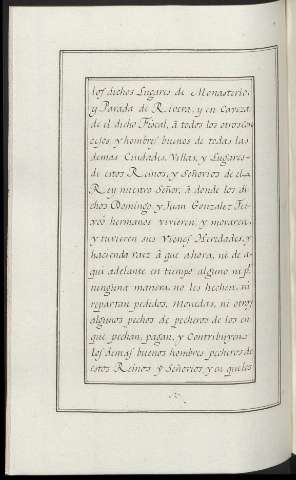 los dichos Lugares de Monasterio,
y Parada de Rivera, y en Caveza
de el dicho Fiscal, â todos los otros con
cejos y hombres buenos de todas las
demas Ciudades, Villas, y Lugares
de estos Reinos, y Señorios de el
Rey nuestro Señor, â donde los di
chos Domingo y Juan Gonzalez
hermanos vivieren, y moraren,
y tuvieren sus Vienes Heredades, y
haciendo raez â que ahora, ni de a-
qui adelante en tiempo alguno ni pr.
ninguna manera, no les hechen, ni
repartan pedidos, Monedas, ni otros
algunos pechos de pecheros de los en
que pechan, pagan, y Contribuyen
los demas buenos hombres pecheros de
estos Reinos y Señorios y en que los